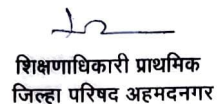 शिक्षणाधिकारी प्राथमिक
जिल्हा परिषद अहमदनगर